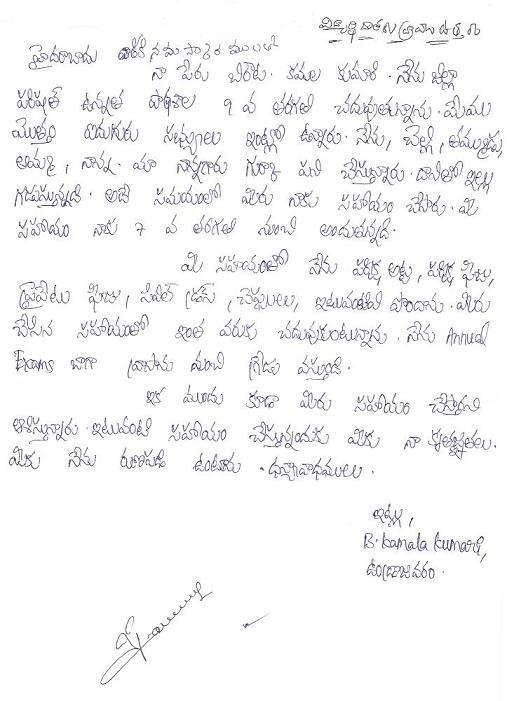 విద్యార్థి దాతలు వ్రాయు ఉత్తరం
హైదరాబాదు వారికి నమస్కారములతో
నా పేరు బిరెటి. కమల కుమారి. నేను జిల్లా
పరిషత్ ఉన్నత పాఠశాల 9 వ తరగతి చదువుతున్నాను. మేము
మొత్తం ఐదుగురు సభ్యులు ఇంట్లో ఉన్నారు. నేను, చెల్లి, తమ్ముడు,
అమ్మ, నాన్న. మా నాన్నగారు గుర్కా పని చేస్తున్నారు. దానితో ఇల్లు
గడుస్తున్నది. అదే సమయంలో మీరు నాకు సహాయం చేసారు. మీ
సహాయం నాకు 7 వ తరగతి నుంచి అందుతున్నది.
మీ సహయంతో నేను పరీక్ష అట్ట, పరీక్ష ఫీజు,
ప్రైవేటు ఫీజు, సివిల్ డ్రెస్, చెప్పులు, ఇటువంటివి పొందాను. మీరు
చేసిన సహాయంతో ఇంత వరుకు చదువుకుంటున్నాను. నేను Annual
Exams బాగా వ్రాసాను మంచి గ్రేడు వస్తుంది.
ఇక ముందు కూడా మీరు సహాయం చేస్తారని
ఆశిస్తున్నారు. ఇటువంటి సహాయం చేస్తున్నందుకు మీకు నా కృతజ్ఞతలు.
మీకు నేను రుణపడి ఉంటారు. ధన్యావాధములు.
ఇట్లు,
B. Kamala Kumari,
ఉండ్రాజవరం.